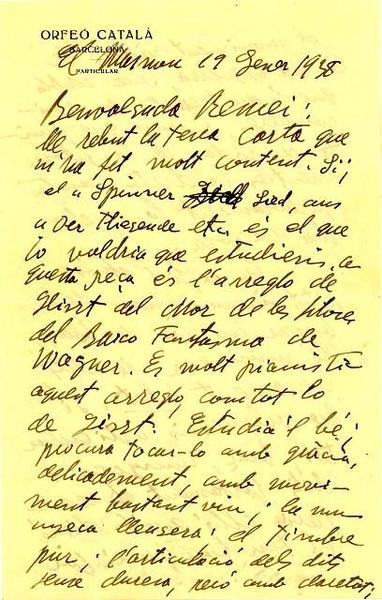 ORFEÓ CATALÀ
BARCELONA
PARTICULAR
El Masnou 19 Gener 1938
Benvolguda Remei:
He rebut la teva carta que
m'ha fet molt content. Sí,
el a Spinner Lied, aus
a Der Fliegende etc. és el que
jo voldria que estudiessis, a
questa peça és l'arreglo de
Liszt del Chor de les filoses
del Barco Fantasma de
Wagner. És molt pianístic
aquest arreglo, com tot lo
de Liszt. Estudia'l bé;
procura tocar-lo amb gràcia,
delicadement, amb movi-
ment bastant viu; la mu
nyeca lleugera; el timbre
pur; l'articulació dels dits
sense duresa, però amb claretat;